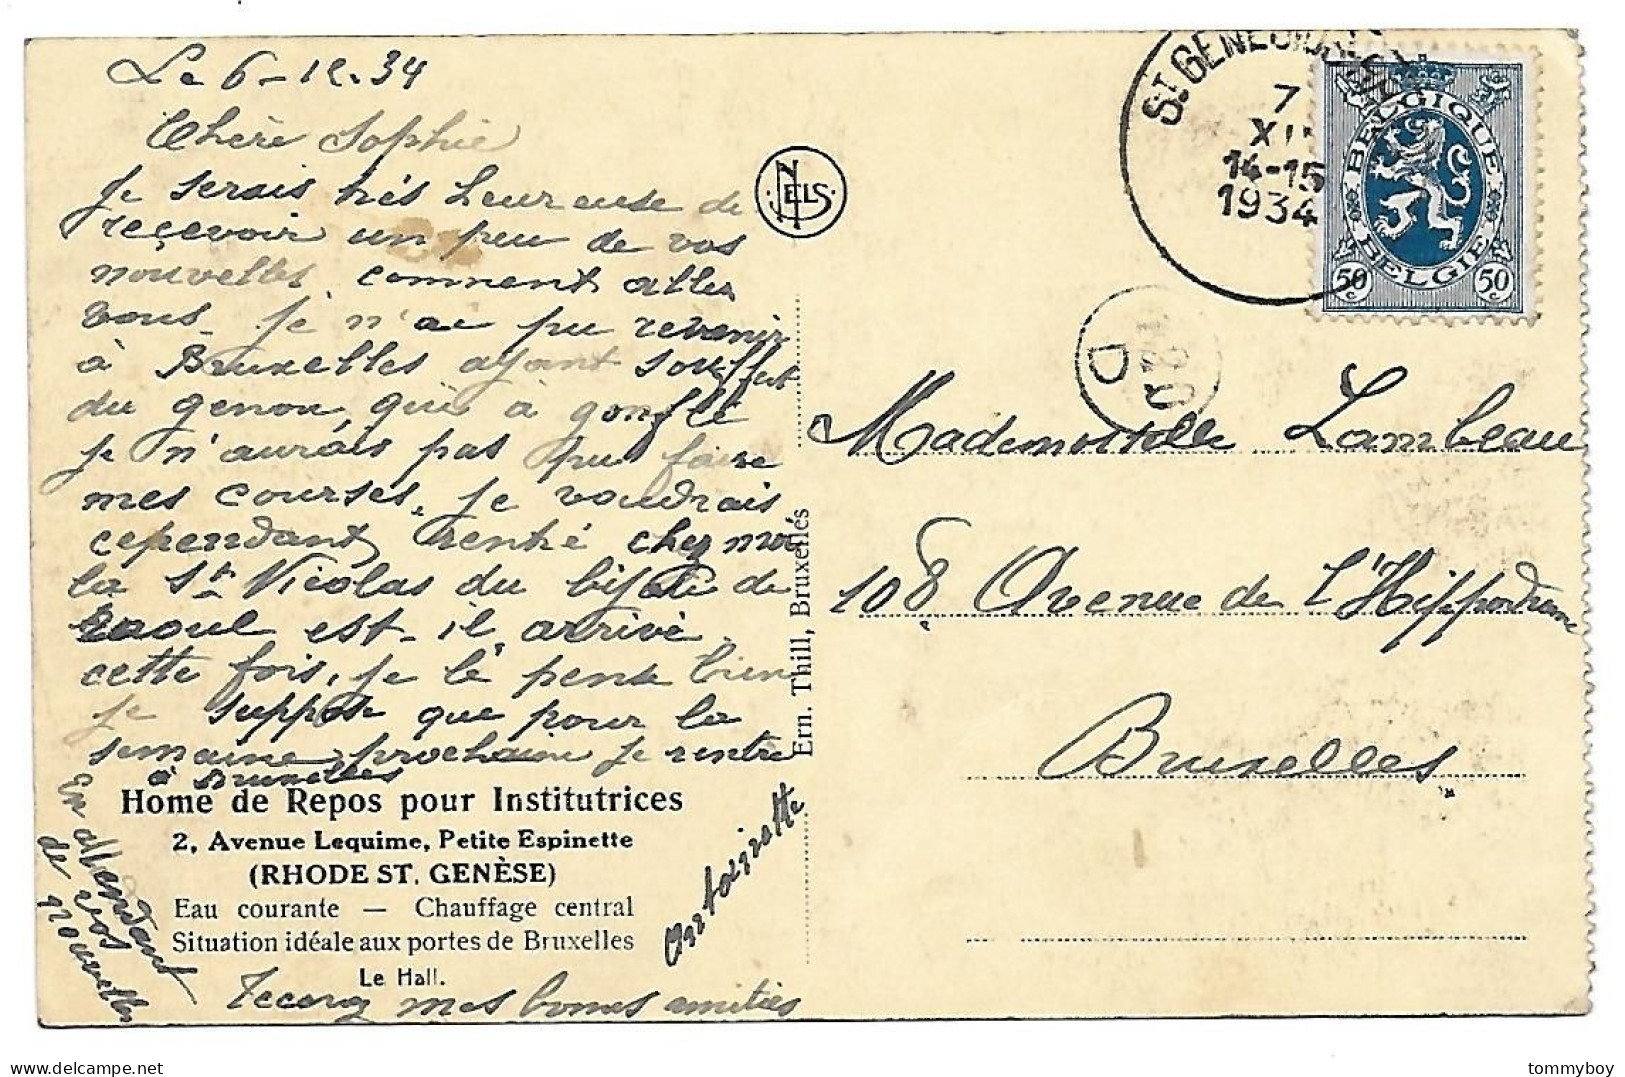 Le 6-12.34
Chère Sophie
Je serais très heureuse de
recevoir un peu de vos
nouvelles, comment allez
vous. Je n'ai pu revenir
à Bruxelles ayant souffert
du genou qui a gonflé
je n'aurais pas pu faire
mes courses, je voudrais
cependant rentré chez moi
la St. Nicolas du de
Raoul est-il arrivé
cette fois, je le pense bien
je suppose que pour la
semaine prochaine je rentre
à Bruxelles
En attendant
de vos
nouvelles
Recevez mes bonnes amitiés
Antoinette
Home de Repos pour Institutrices
2, Avenue Lequime, Petite Espinette
(RHODE ST. GENÈSE)
Eau courante — Chauffage central
Situation idéale aux portes de Bruxelles
Le Hall.
NELS
Ern. Thill, Bruxelles
7
XII
14-15
1934
BELGIQUE
BELGIE
50 c
50 c
D
Mademoiselle Lambeau
108 Avenue de l'Hippodrome
Bruxelles
tommyboy
delcampe.net